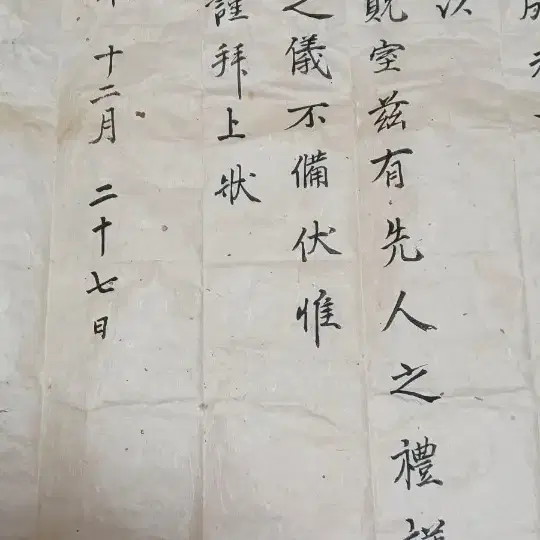 貺室茲有先人之禮謹
之儀不備伏惟
謹拜上狀
十二月 二十七日